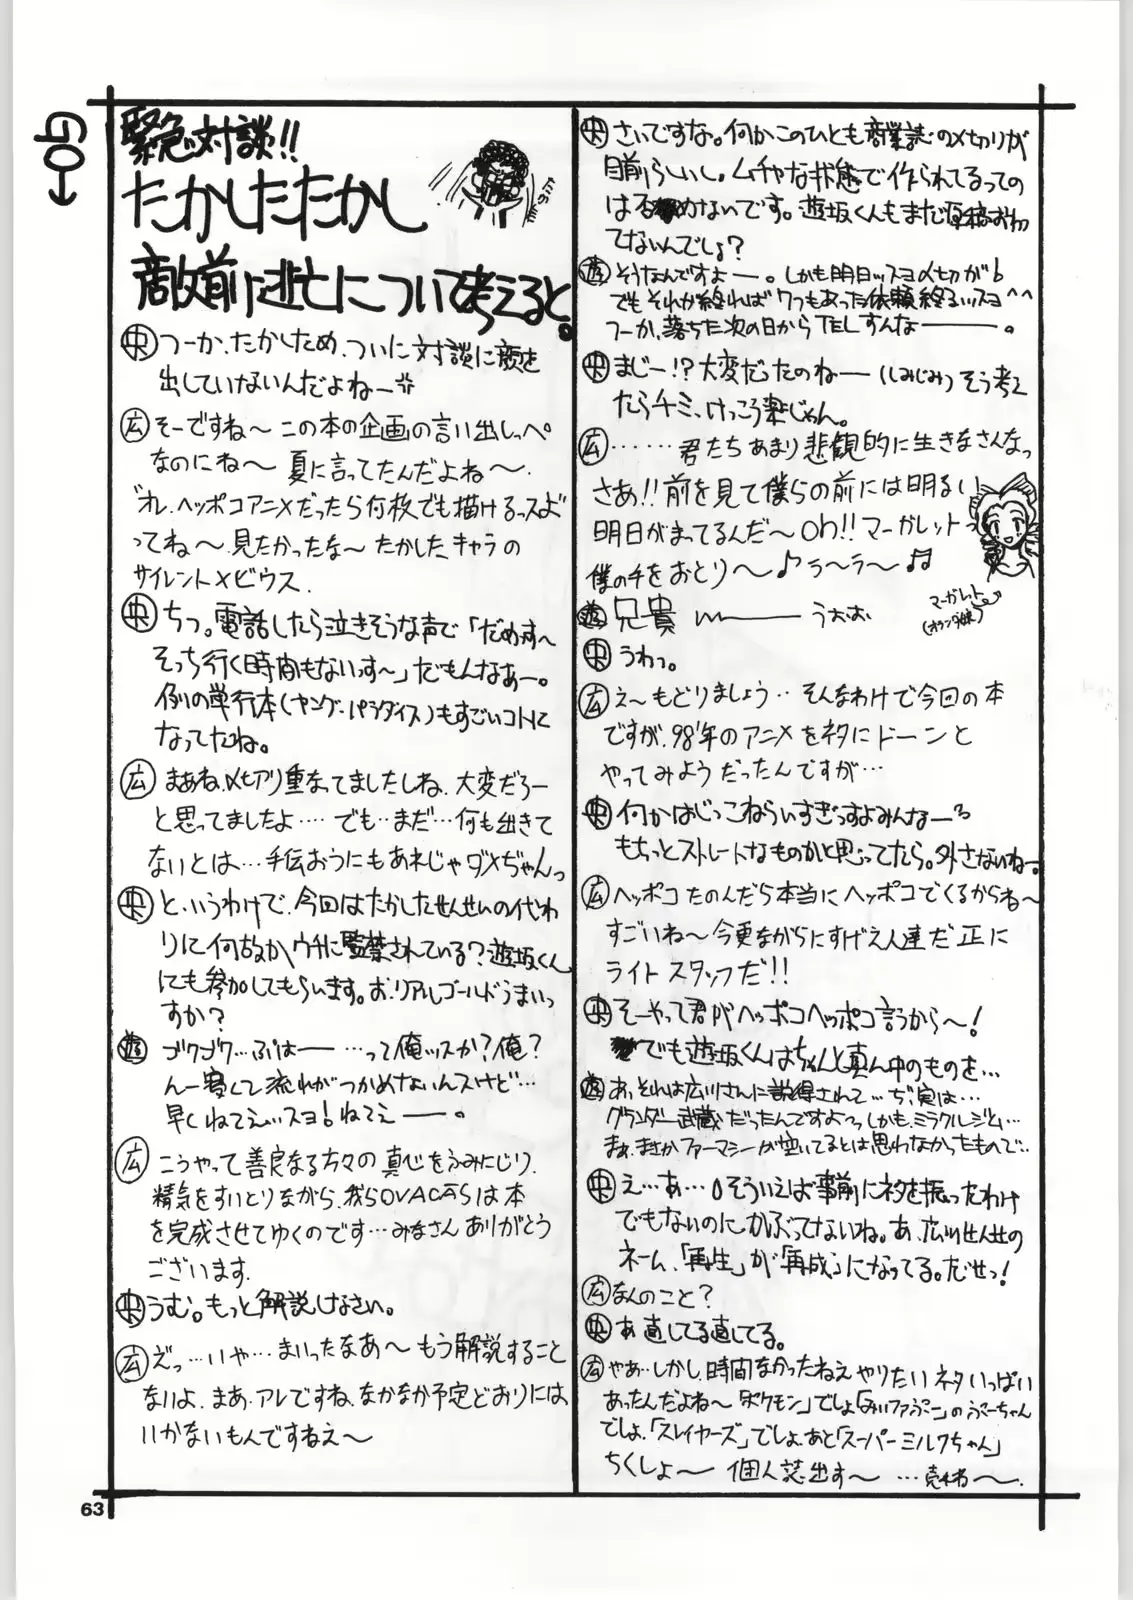 GO
緊急対談!!
たかしたたかし
敵前逃亡について考えると。
央 つーか、たかしため、ついに対談に顔を
出していないんだよねー
広 そーですね〜この本の企画の言い出しっぺ
なのにね〜夏に言ってたんだよね〜.
"オレ、ヘッポコアニメだったら何枚でも描けるっスよ"
ってね〜見たかったな〜たかしたキャラの
サイレントメビウス.
央 ちっ。電話したら泣きそうな声で「だめっす〜
そっち行く時間もないっす〜」だもんなあー。
例の単行本(ヤング・パラダイス)もすごいコトに
なってたね。
広 まぁね、〆切り重なってましたしね、大変だろー
と思ってましたよ…‥でも‥まだ…何も出きて
ないとは…手伝おうにもあれじゃダメぢゃんっ
央 というわけで、今回はたかしたせんせいの代わ
りに何故かウチに監禁されている?遊坂くん
にも参加してもらいます。お、リアルゴールドうまいっ
すか?
遊 ゴクゴク…ぷはー …って俺ッスか?俺?
んー寝てて流れがつかめないんスけど…
早くねてえ…スヨ!ねてえー。
広 こうやって善良なる方々の真心をふみにじり、
精気をすいとりながら、我らOVACASは本
を完成させてゆくのです…みなさんありがとう
ございます.
央 うむ。もっと解説しなさい。
広 えっ…いや…まいったなあ〜もう解説すること
ないよ、まあ、アレですね、なかなか予定どおりには
いかないもんですねえ〜
63
央 さいですな。何かこのひとも商業誌の〆切りが
目前らしいし。ムチャな状態で作られてるっての
は否めないです。遊坂くんもまだ原稿おわっ
てないんでしょ?
遊 そうなんですよー。しかも明日ッスヨ〆切が
でもそれが終れば7つもあった依頼終るッスヨ^^
つーか、落ちた次の日からTELすんなー。
央 まじー!?大変だったのねー(しみじみ)そう考え
たらチミ、けっこう楽じゃん。
広 ……君たちあまり悲観的に生きなさんなっ
さあ!!前を見て僕らの前には明るい
明日がまってるんだ〜Oh!!マーガレットっ
僕の手をおとり〜♪ラ〜ラ〜♬
マーガレット
(オランダ娘)
遊 兄貴ー うぉぉ
央 うわっ。
広 え〜もどりましょう‥そんなわけで今回の本
ですが、98'年のアニメをネタにドーンと
やってみようだったんですが…
央 何かはじっこねらいすぎっすよみんなー
もちっとストレートなものかと思ってたら。外さないねー。
広 ヘッポコたのんだら本当にヘッポコでくるからね〜
すごいね〜今更ながらにすげえ人達だ正に
ライトスタッフだ!!
央 そーやって君がヘッポコヘッポコ言うから〜!
でも遊坂くんはちゃんと真ん中のものを…
遊 あっそれは広川さんに説得されて…ぢ、実は…
グランダー武蔵だったんですよっっしかも、ミラクルジム…
まぁ、まさかファーマシーが空いてるとは思わなかったもので…
央 え…あ…そういえば事前にネタを振ったわけ
でもないのにかぶってないね。あ、広川せんせの
ネーム、「再生」が「再成」になってる。だせっ!
広 なんのこと?
央 あ直してる直してる。
広 やあ…しかし、時間なかったねえやりたいネタいっぱい
あったんだよね〜「ポケモン」でしょ「みいファぷー」のぷーちゃん
でしょ、「スレイヤーズ」でしょ、あと「スーパーミルクちゃん」
ちくしょ〜個人誌出す〜